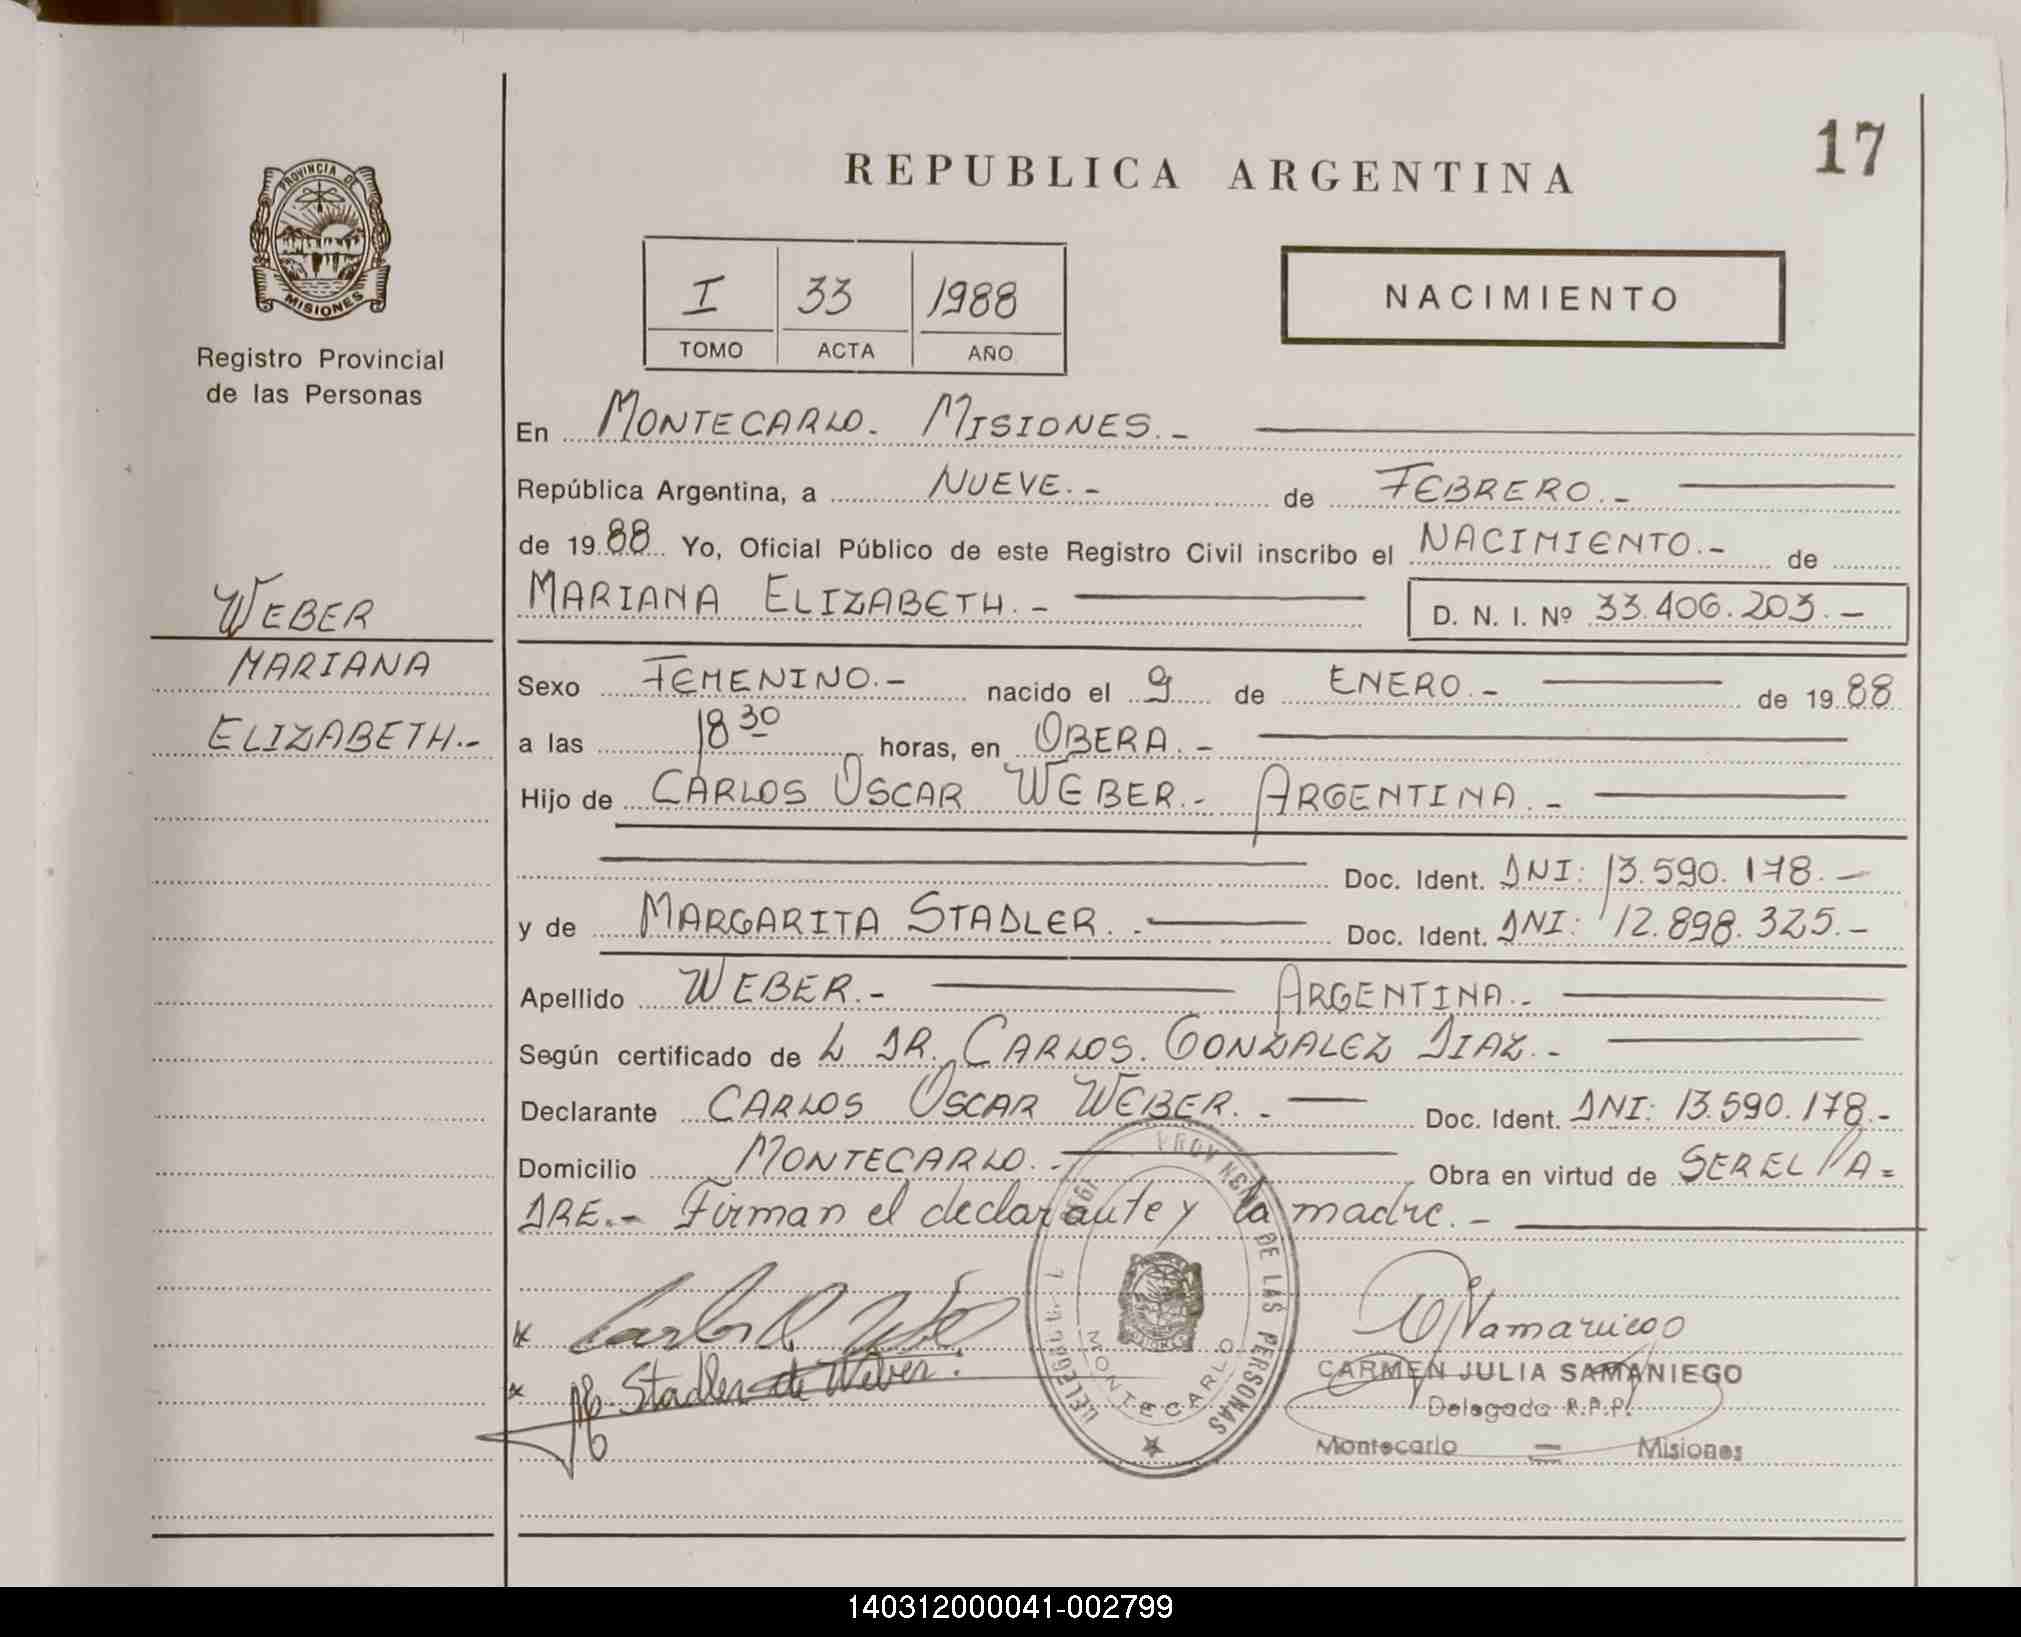 17
REPUBLICA ARGENTINA
PROVINCIA DE
MISIONES
Registro Provincial
de las Personas
I 33 1988
TOMO ACTA AÑO
NACIMIENTO
En MONTECARLO. MISIONES.-
República Argentina, a NUEVE.- de FEBRERO.-
de 1988 Yo, Oficial Público de este Registro Civil inscribo el NACIMIENTO.- de
MARIANA ELIZABETH.- D. N. I. Nº 33.406.203.-
WEBER
MARIANA
ELIZABETH.-
Sexo FEMENINO.- nacido el 9 de ENERO.- de 1988
a las 18 30 horas, en OBERA.-
Hijo de CARLOS OSCAR WEBER.- ARGENTINA.-
Doc. Ident. DNI: 13.590.178.-
y de MARGARITA STADLER.- Doc. Ident. DNI: 12.898.325.-
Apellido WEBER.- ARGENTINA.-
Según certificado de L DR. CARLOS. GONZALEZ DIAZ.-
Declarante CARLOS OSCAR WEBER.- Doc. Ident. DNI: 13.590.178.-
Domicilio MONTECARLO.- Obra en virtud de SER EL PA=
DRE.- Firman el declarante y la madre.-
DE LAS PERSONAS
MONTECARLO
M. Stadler de Weber.
CARMEN JULIA SAMANIEGO
Delegada R.P.P.
Montecarlo = Misiones
140312000041-002799